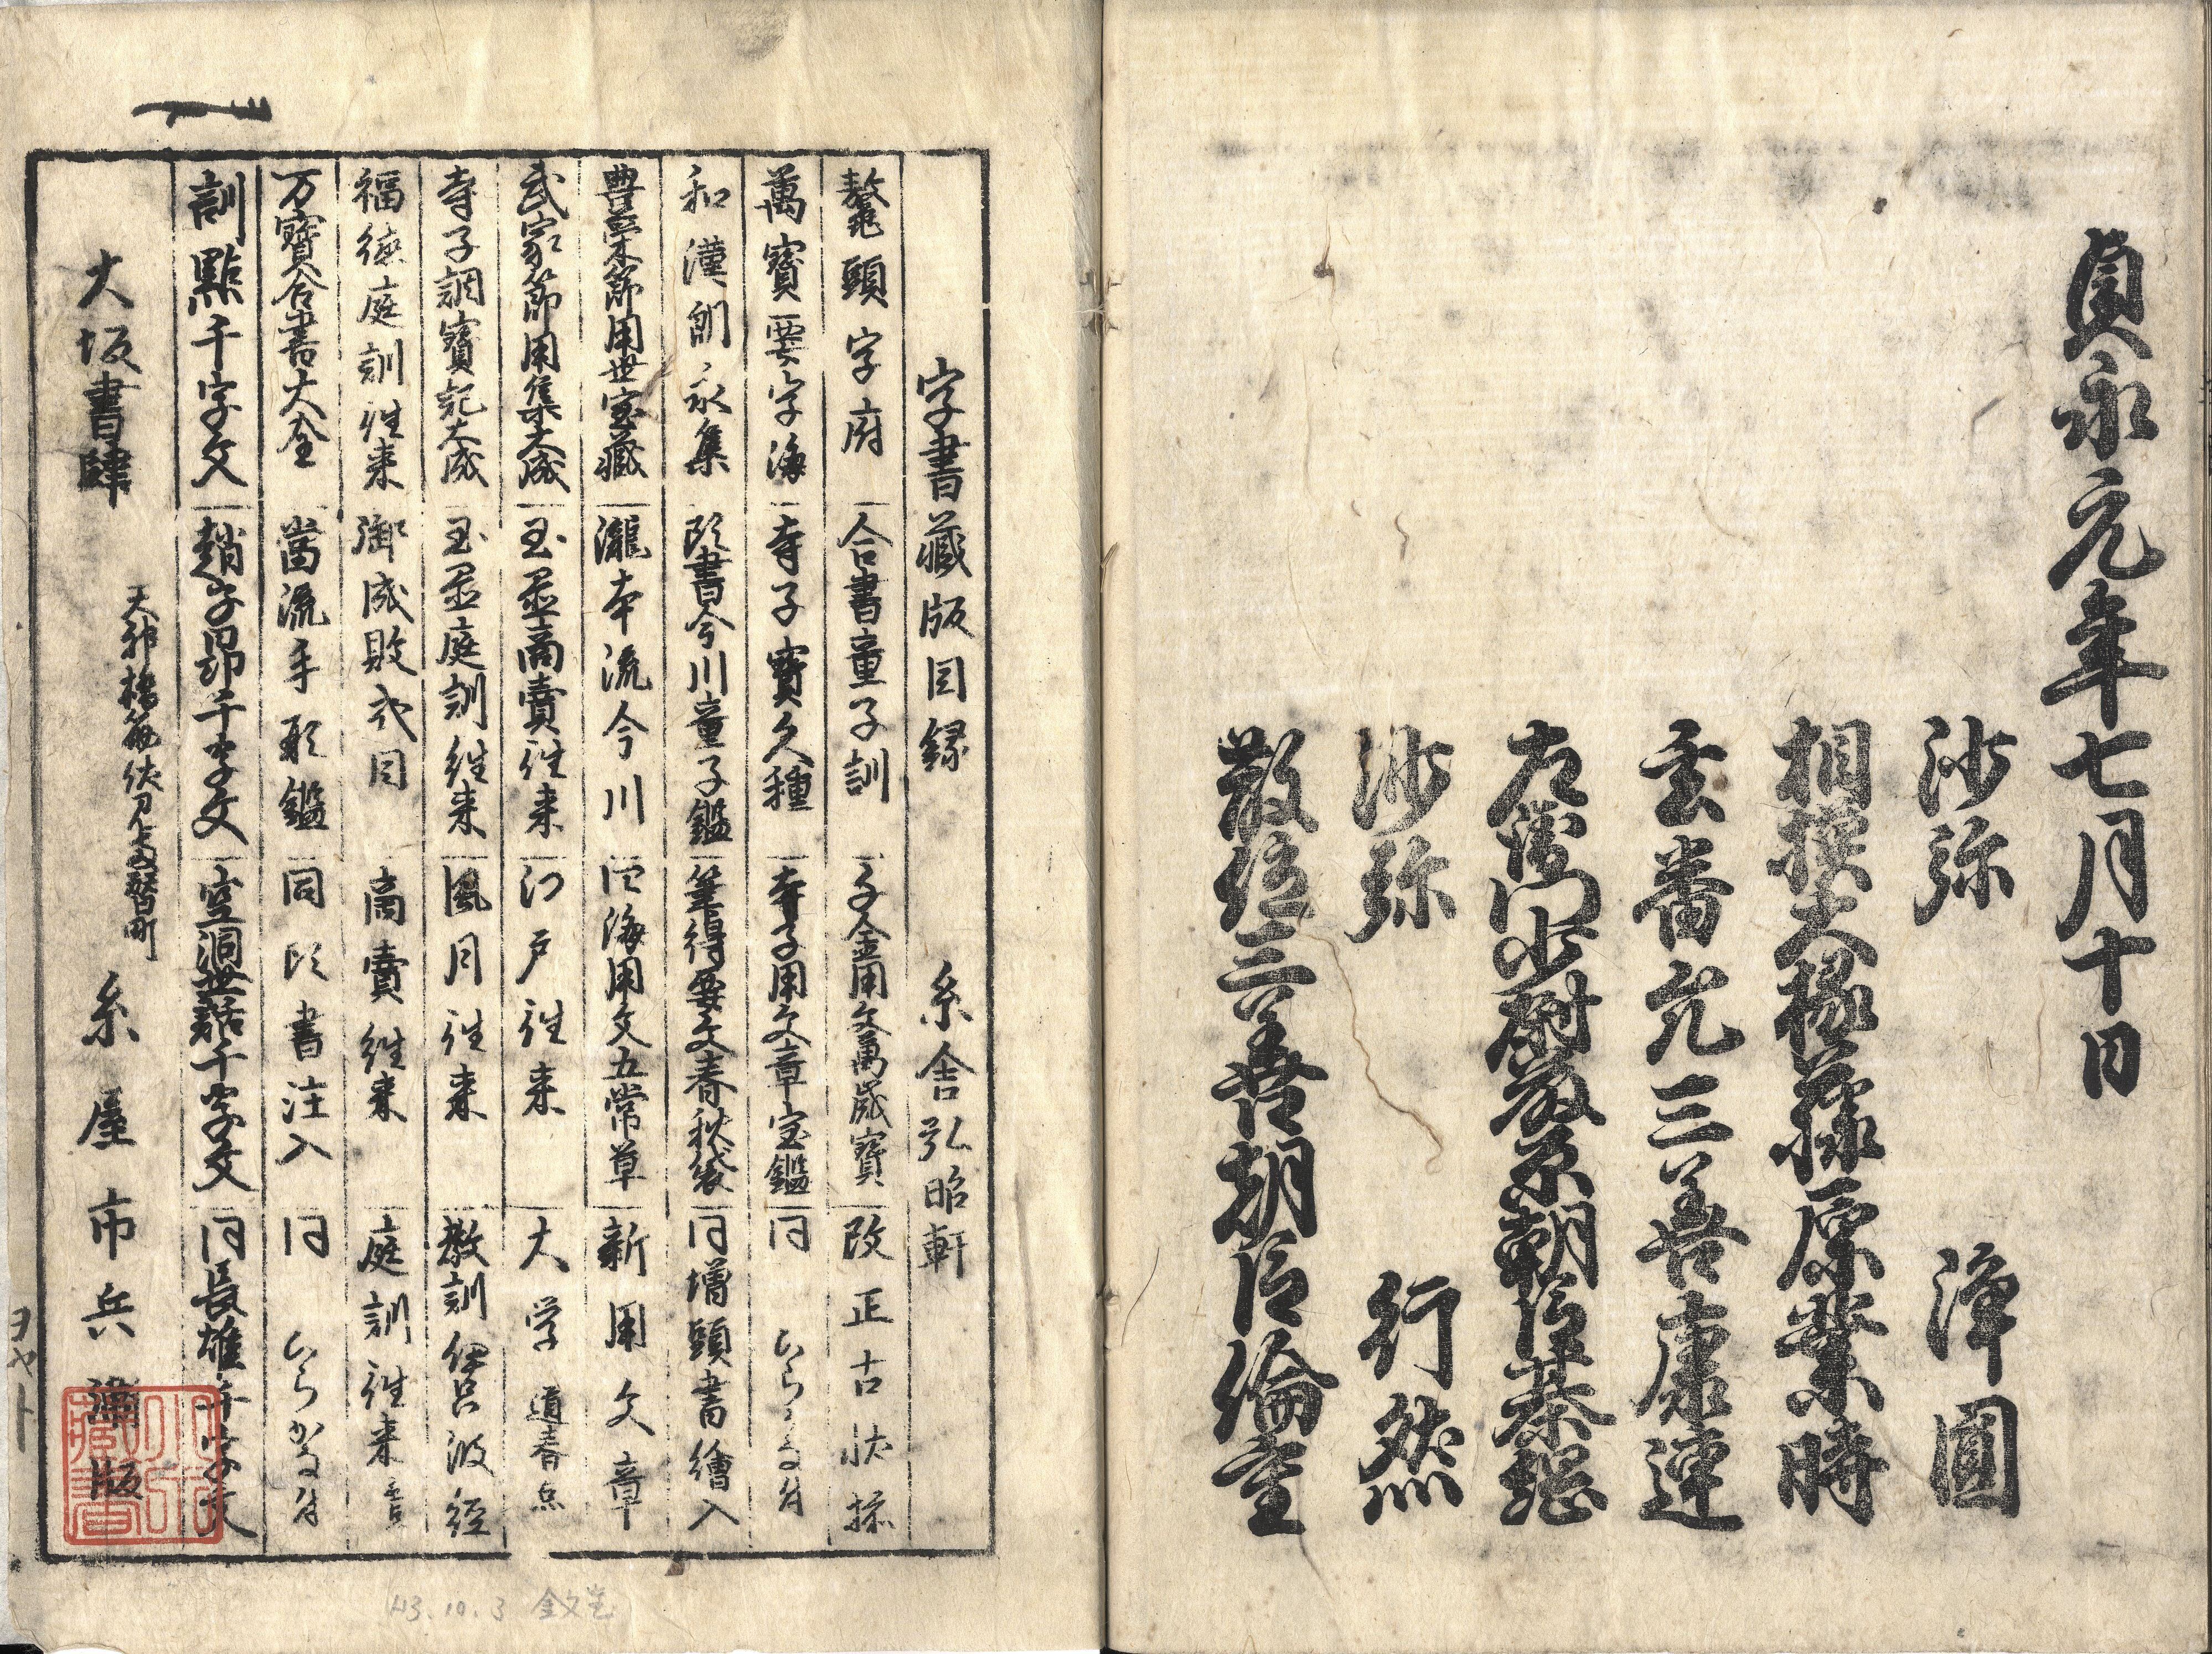 貞永元年七月十日
沙弥 淨圓
相摸大掾藤原業時
玄蕃允三善康連
左衛門少尉藤原朝臣基綱
沙弥 行然
散位三善朝臣倫重
字書藏版目録 糸舎弘昭軒
鼇頭字府 合書童子訓 千金用文萬歳寶 改正古状揃
萬寶要字海 寺子寶久種 寺子用文章宝鑑 同 ひらかな付
和漢朗詠集 頭書今川童子鑑 筆得要文春秋袋 同増頭書繪入
豊栄節用世宝藏 瀧本流今川 四海用文五常草 新用文章
武家節用集大成 玉置商賣往来 江戸往来 大学 道春点
寺子調寶記大成 玉置庭訓往来 風月往来 教訓伊呂波経
福徳庭訓往来 御成敗式目 商賣往来 庭訓往来
万寶合書大全 當流手形鑑 同頭書注入 同 ひらかな付
訓點千字文 趙子昂千字文 空洞世話千字文 同長雄千字文
大坂書肆 糸屋市兵衛版
43.10.3